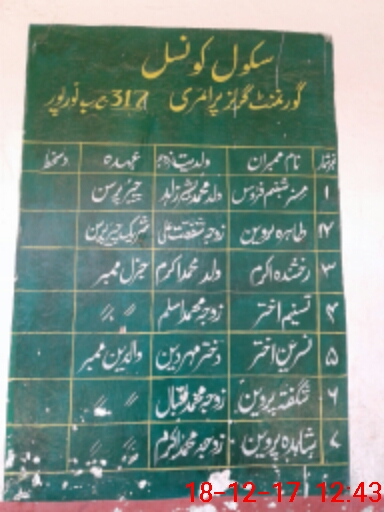 سکول کونسل
گورنمنٹ گرلز پرائمری 317 ج ب نورپور
نمبر شمار نام ممبران ولدیت/زوجہ عہدہ دستخط
۱ مسز شبنم فردوس ولد محمد بشیر زاہد چیئرپرسن
۲ طاہرہ پروین زوجہ شفقت علی شریک چیئرپرسن
۳ رخشندہ اکرم ولد محمد اکرم جنرل ممبر
۴ تسنیم اختر زوجہ محمد اسلم // //
۵ نسرین اختر دختر مہر دین والدین ممبر
۶ شگفتہ پروین زوجہ محمد اقبال // //
۷ شاہدہ پروین زوجہ محمد اکرم // //
18-12-17 12:43